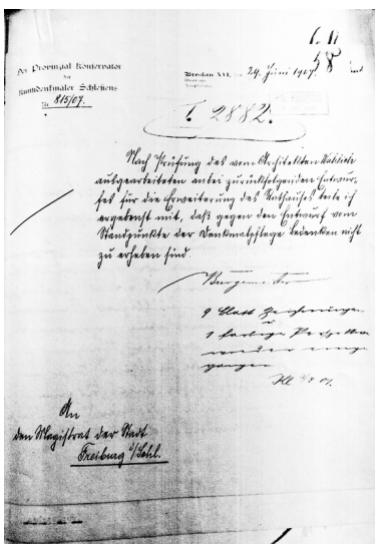 Der Provinzial-Konservator
der
Kunstdenkmäler Schlesiens
Nr. 815/07.
Breslau XVI, den 24. Juni 1907.
I. 2882.
Nach Prüfung des vom Architekten
ausgearbeiteten anbei zurückfolgenden Entwur-
fes für die Erweiterung des Rathauses teile ich
ergebenst mit, daß gegen den Entwurf vom
Standpunkte der Denkmalpflege Bedenken nicht
zu erheben sind.
9 Blatt Zeichnungen
1 farbige
An
den Magistrat der Stadt
Freiburg i/Schl.